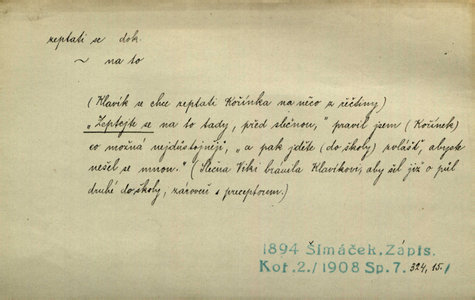 zeptati se dok.
~ na to
(Klavík se chce zeptati Kořínka na něco z řečtiny)
„Zeptejte se na to tady, před slečnou," pravil jsem (Kořínek)
co možná nejdůstojněji, „a pak jděte (do školy) zvlášť, abyste
nešel se mnou." (Slečna Viki bránila Klavíkovi, aby šel již o půl
druhé do školy, zároveň s preceptorem.)
1894 Šimáček, Zápis.
Koř. 2./1908 Sp. 7. 324, 15./